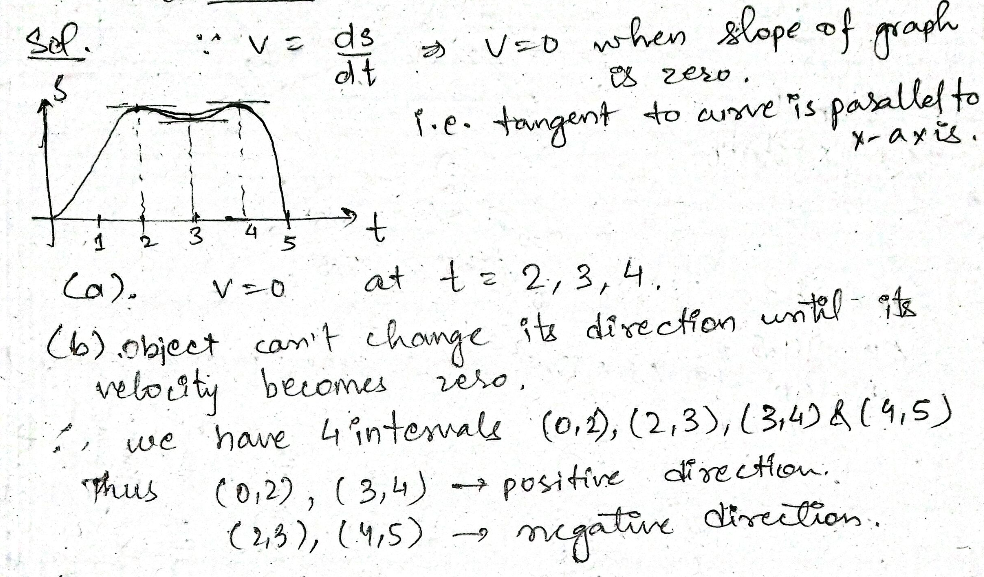 Sol. ∵ v = ds/dt ⇒ v=0 when slope of graph
is zero.
i.e. tangent to curve is parallel to
x-axis.
S
1 2 3 4 5 t
(a). v=0 at t = 2, 3, 4.
(b) object can't change its direction until its
velocity becomes zero.
∴ we have 4 intervals (0,2), (2,3), (3,4) & (4,5)
Thus (0,2), (3,4) → positive direction.
(2,3), (4,5) → negative direction.